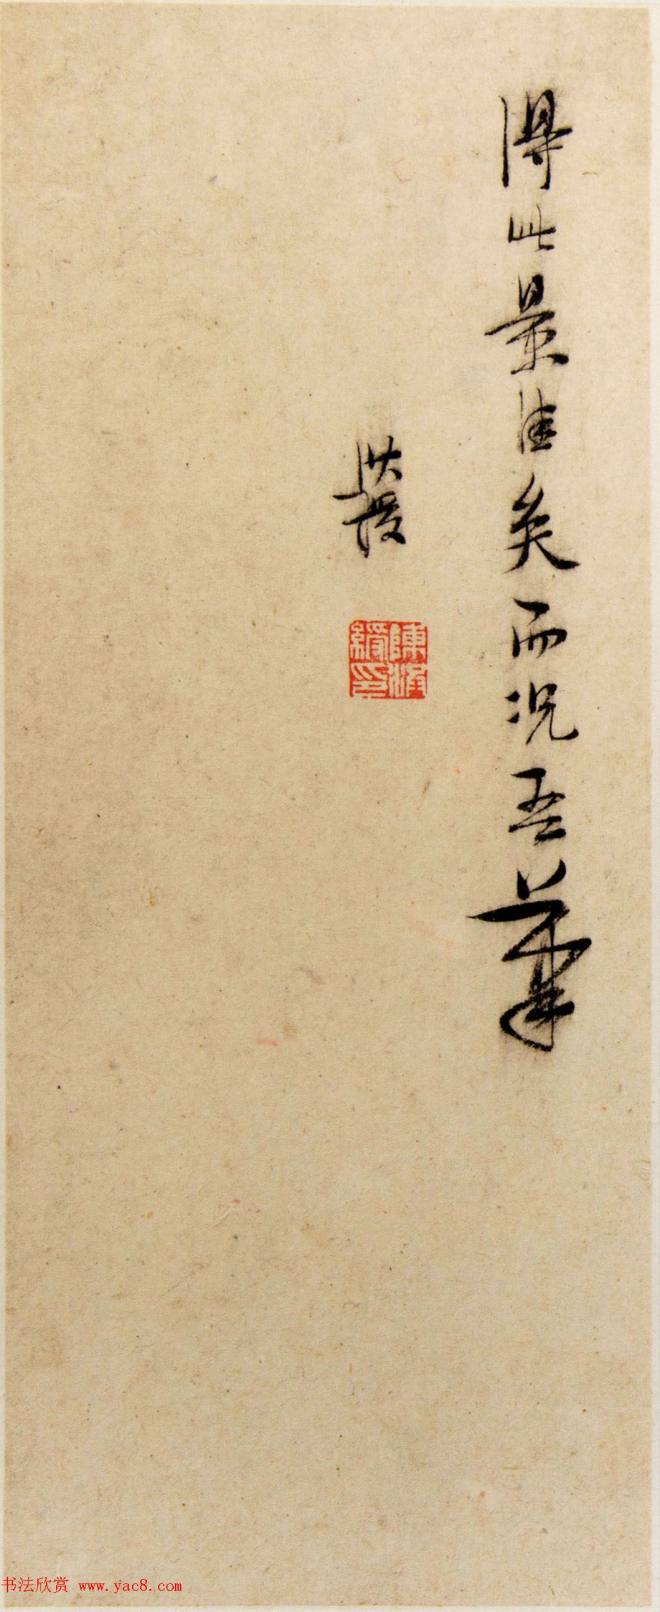 得此景佳矣而况吾
洪綬
陳洪綬印
书法欣赏 www.yac8.com